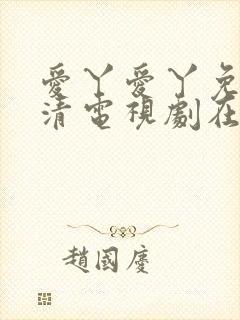 愛丫愛丫免
清電視劇在
趙國慶